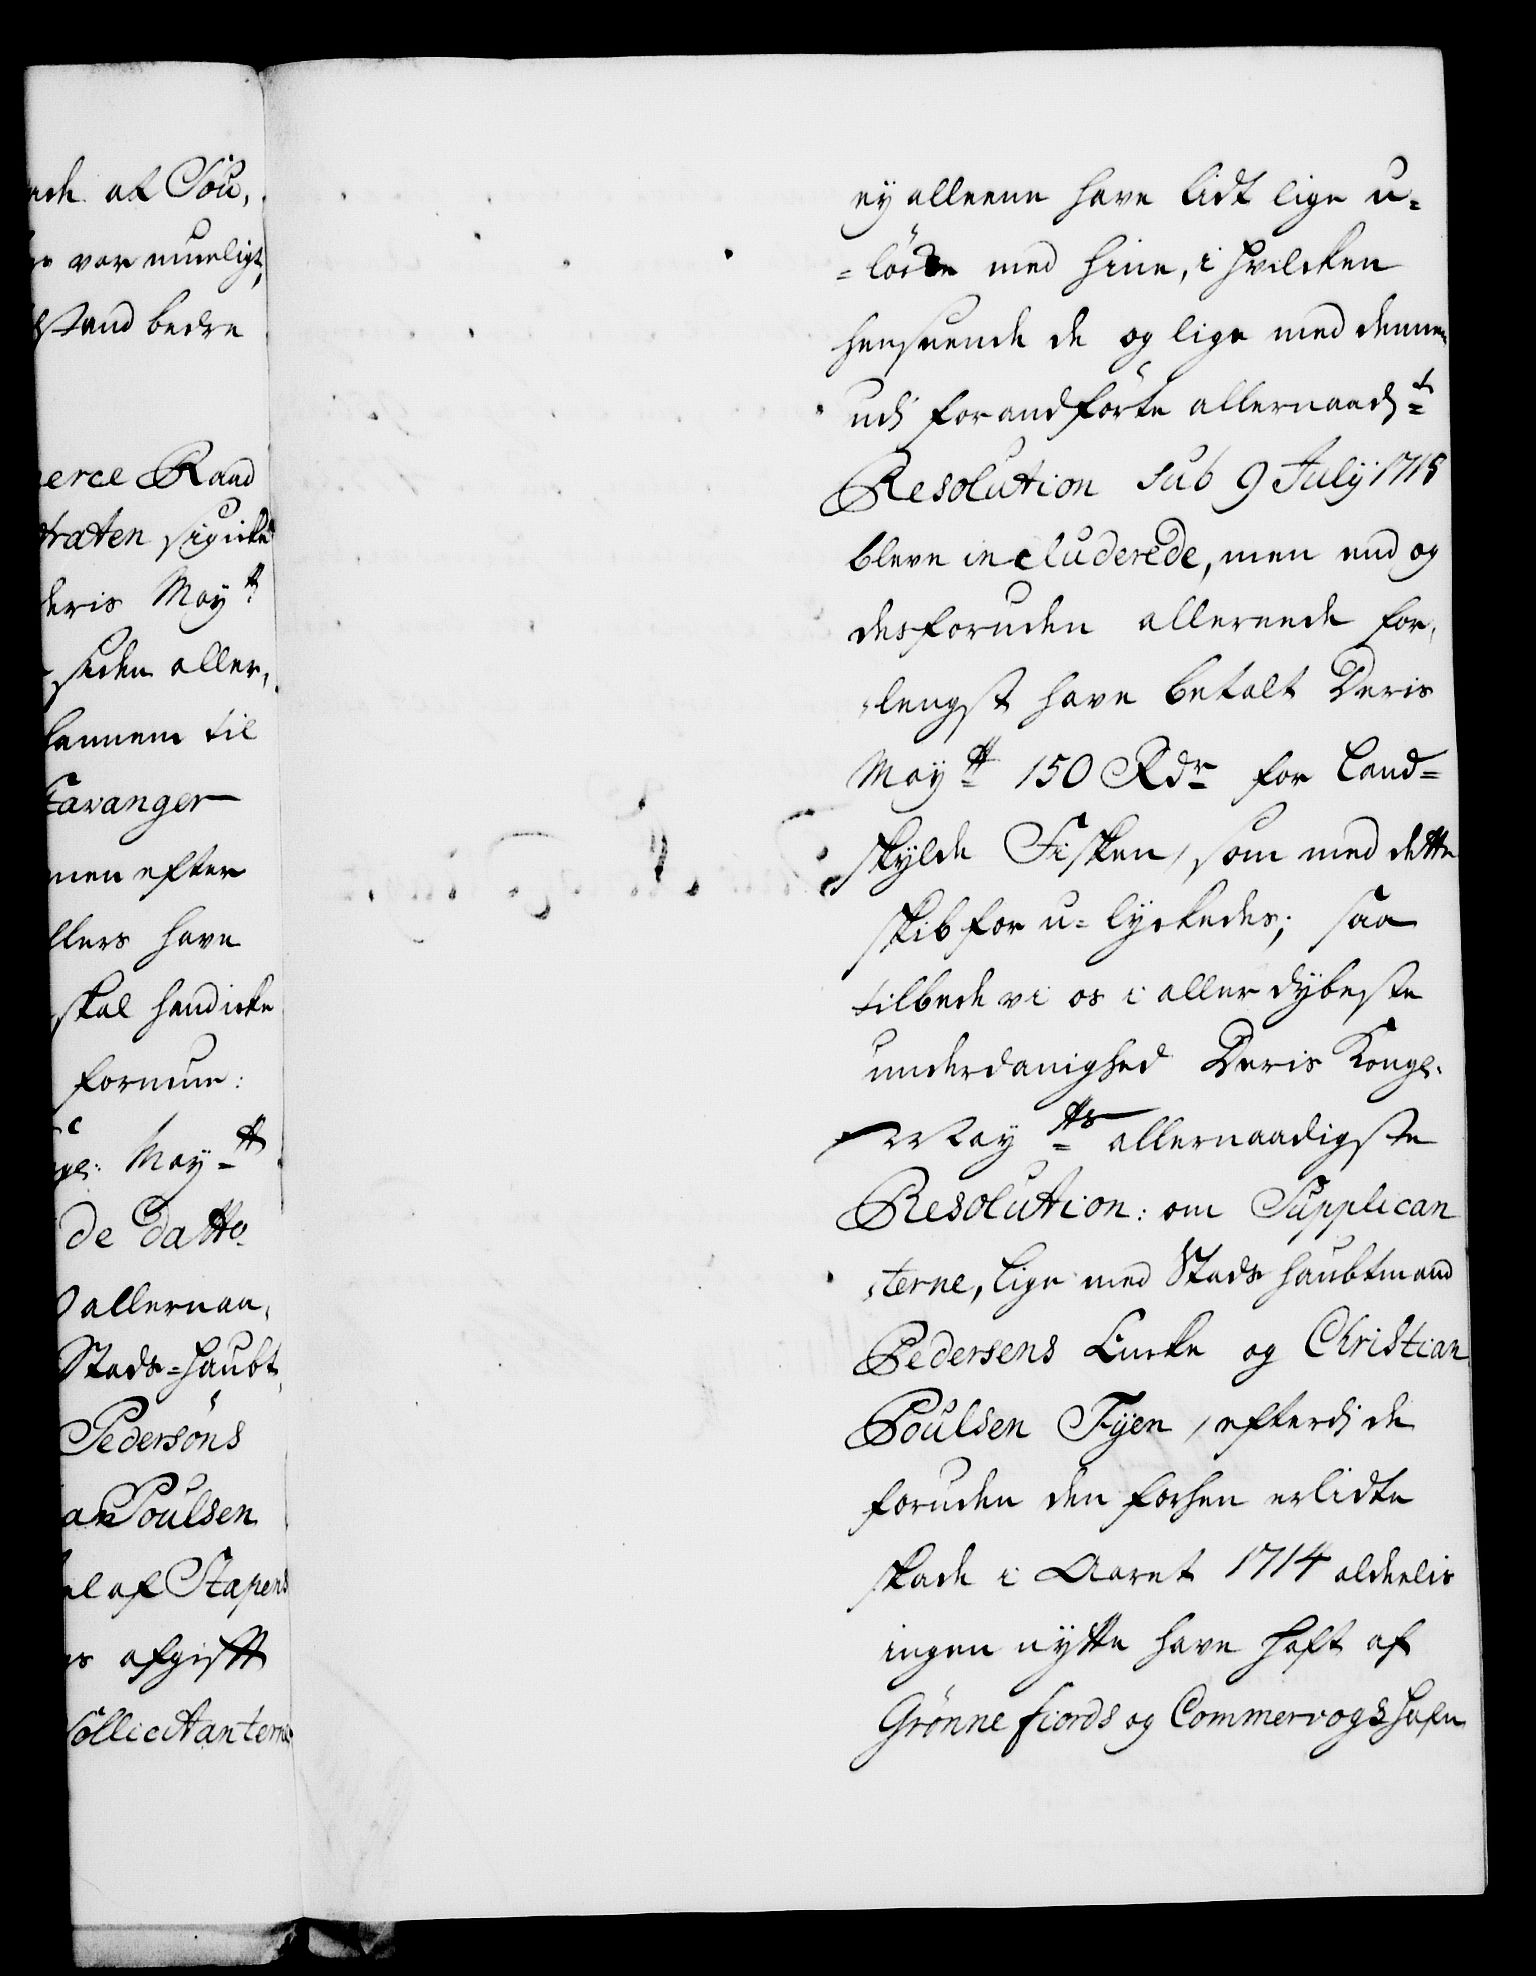 ade af Søe,
ge var mueligt,
lstand bedre
merce Raad
traten siger
deris May.tt
siden aller,
hannem til
Stavanger
men efter
llers have
skal hand icke
formeene:
ngl: May.tt
de datto
allernaa,
Stads-Haubt,
Pedersöns
an Poulsen
el af Stapens
es afgifft
Sollicitanterne
ey alleene have lidt lige u-
-löcke med hine, i hvilcken
henseende de og lige med denne
udj forandförte allernaadj.st
Resolution sub 9 July 1715
bleve includerede, men end og
desforuden allereede for,
,lengst have betalt Deris
May.tt 150 Rdr for Land-
skylds Fisken, som med dette
skib for u-lyckedes; saa
tilbede vi os i aller dybeste
underdanighed Deris Kongl.
May.tts allernaadigste
Resolution: om Supplican
,terne, lige med Stads Haubtmand
Pedersens Encke og Christian
Poulsen Fyen, efterdj de
foruden den forhen erlidte
skade i Aaret 1714 aldeelis
ingen nytte have haft af
Grönnefiords og Commervogs Hafn